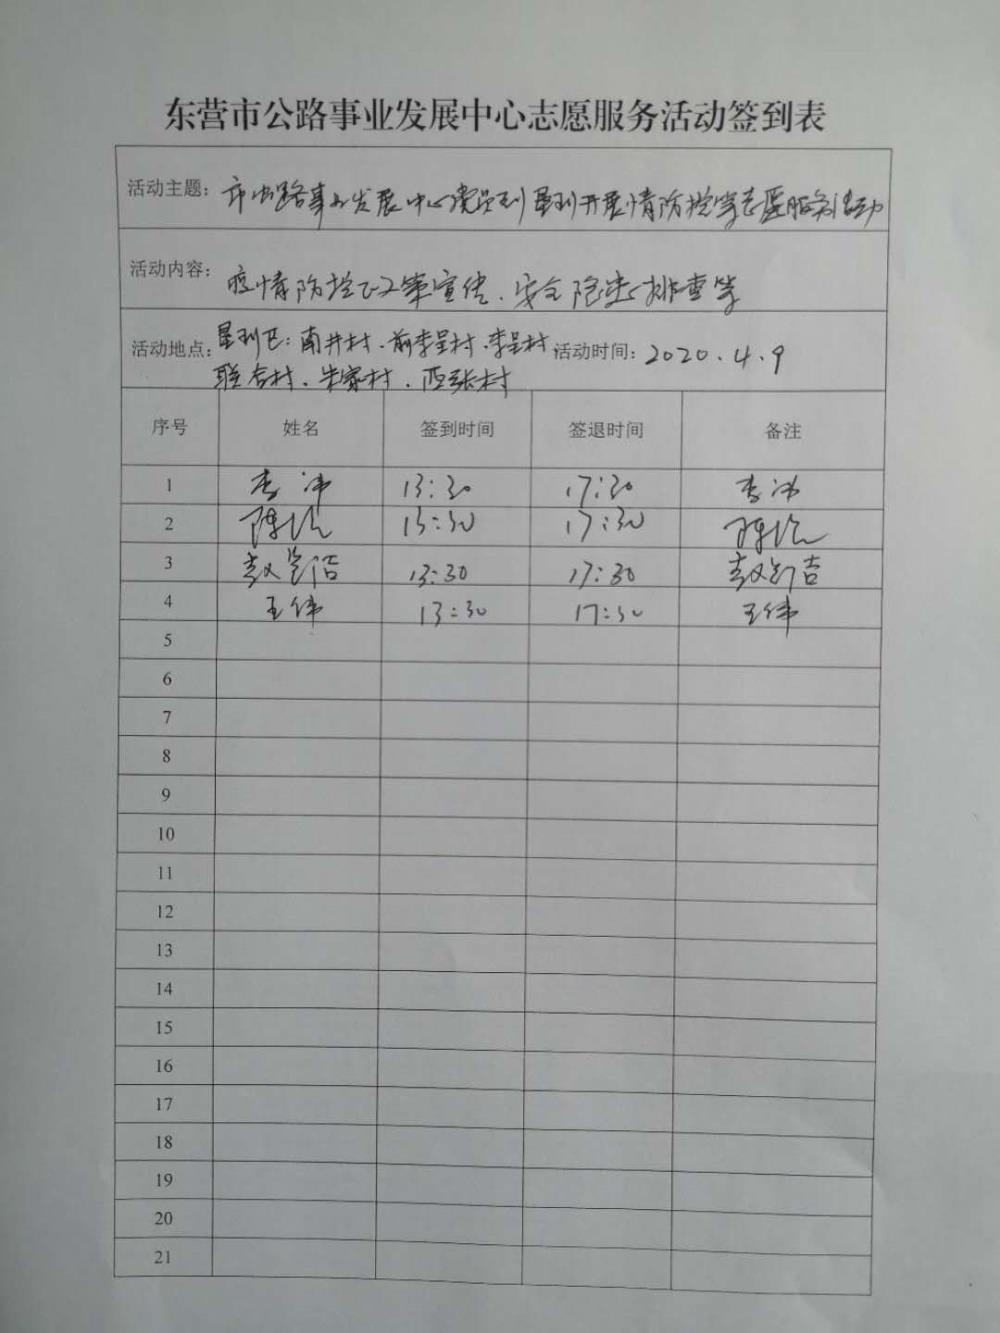 东营市公路事业发展中心志愿服务活动签到表
活动主题: 市公路事业发展中心党员到垦利开展情防控等志愿服务活动
活动内容: 疫情防控政策宣传、安全隐患排查等
活动地点: 垦利区:南井村、前李呈村、李呈村 活动时间: 2020.4.9
联合村、宋家村、西张村
序号 姓名 签到时间 签退时间 备注
1 李沛 13:30 17:30 李沛
2 陈 13:30 17:30 陈
3 赵 13:30 17:30 赵
4 王伟 13:30 17:30 王伟
5
6
7
8
9
10
11
12
13
14
15
16
17
18
19
20
21